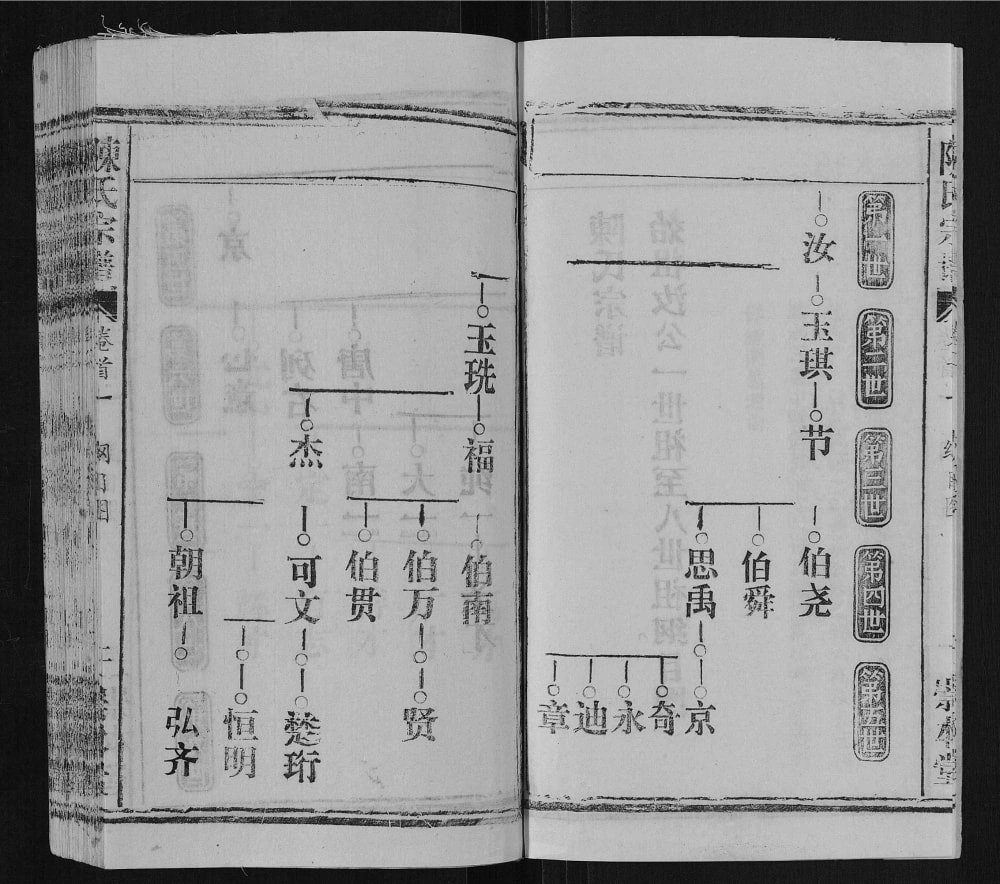 陳氏宗譜
第一世
第二世
第三世
第四世
第五世
汝
玉琪
节
伯尧
伯舜
思禹
京
奇
永
迪
章
玉珗
福
伯南
伯万
贤
伯贯
杰
可文
楚珩
恒明
朝祖
弘齐
陳氏宗譜
卷首一